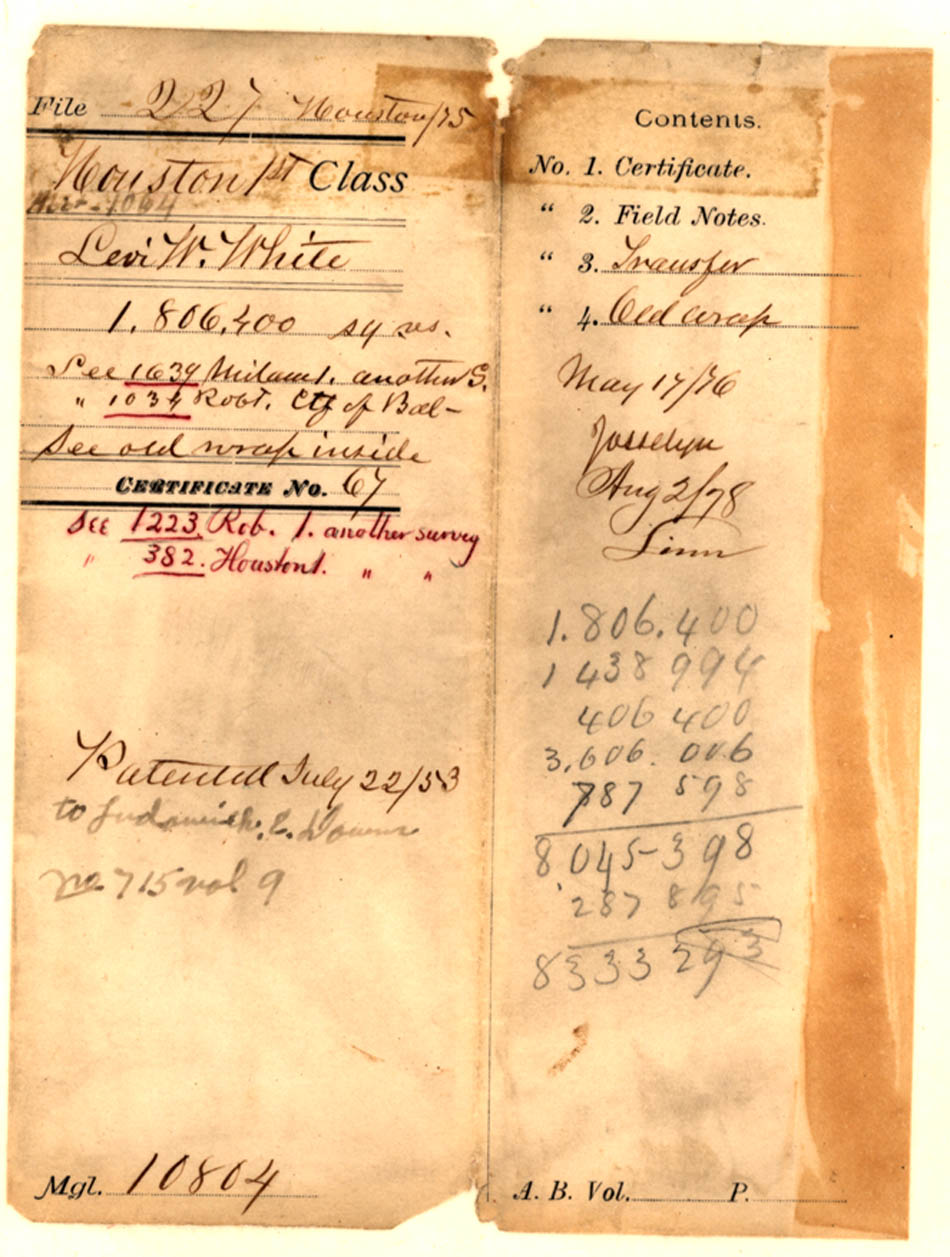 File 227 Houston/75
Houston 1st Class
Abst-1064
Levi W. White
1.806.400 sq vs.
See 1639 Milam 1. another S.
" 1034 Robt. Ctf of Bal-
See old wrap inside
CERTIFICATE No. 67
See 1223. Rob. 1. another survey
" 382. Houston 1. " "
Patented July 22/53
to
No. 715 vol 9
Mgl. 10804
Contents.
No. 1. Certificate.
" 2. Field Notes.
" 3. Transfer
" 4. Old wrap
May 17/76
Josselyn
Aug 2/78
Linn
1.806.400
1 438 994
406 400
3,606.006
787 598
8 045-398
287 895
8333 293
A. B. Vol. P.